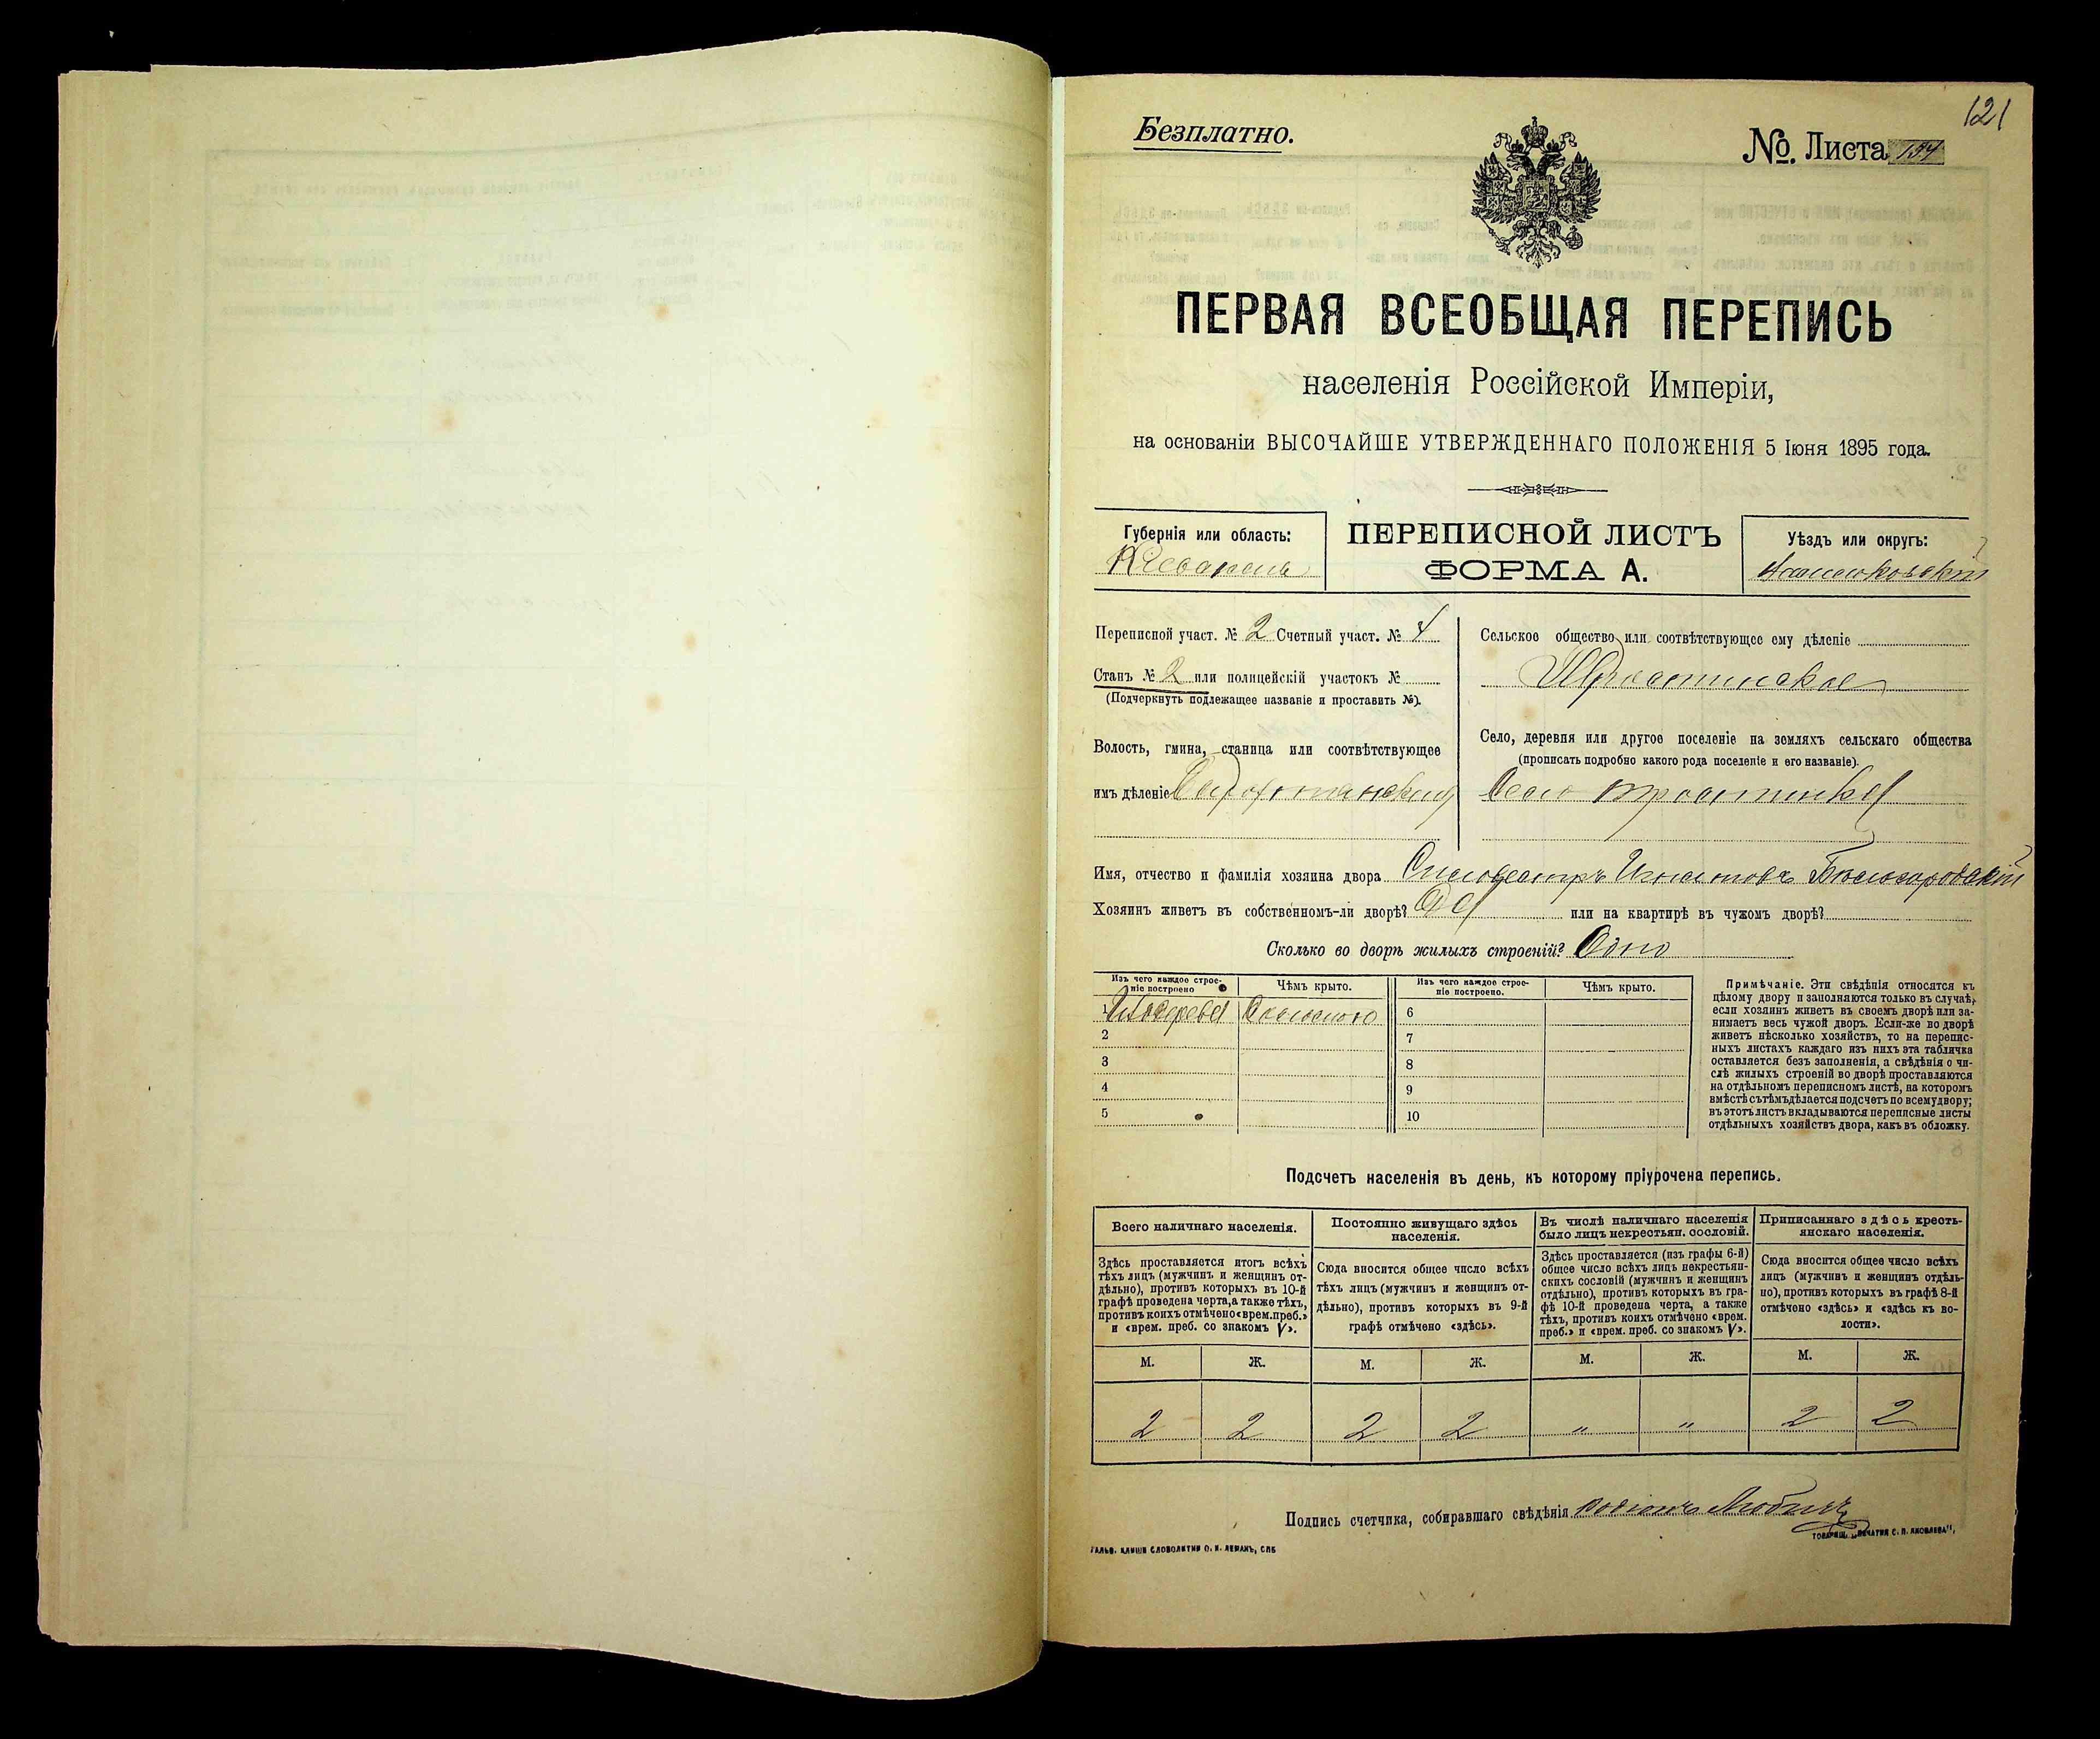 121
Безплатно.
№. Листа 134
ПЕРВАЯ ВСЕОБЩАЯ ПЕРЕПИСЬ
населенія Россійской Имперіи,
на основаніи ВЫСОЧАЙШЕ УТВЕРЖДЕННАГО ПОЛОЖЕНІЯ 5 Іюня 1895 года.
Губернія или область:
Кіевская
ПЕРЕПИСНОЙ ЛИСТЪ
ФОРМА А.
Уѣздъ или округъ:
Переписной участ. № 2 Счетный участ. № 4
Станъ № 2 или полицейскій участокъ №
(Подчеркнуть подлежащее названіе и проставить №).
Волость, гмина, станица или соотвѣтствующее
имъ дѣленіе
Сельское общество или соотвѣтствующее ему дѣленіе
Тростинское
Село, деревня или другое поселеніе на земляхъ сельскаго общества
(прописать подробно какого рода поселеніе и его названіе).
Село Тростинка
Имя, отчество и фамилія хозяина двора Сильвестръ Игнатовъ Бѣлогородскій
Хозяинъ живетъ въ собственномъ-ли дворѣ? Да или на квартирѣ въ чужомъ дворѣ?
Сколько во дворѣ жилыхъ строеній? Одно
Изъ чего каждое строе-
ніе построено
Чѣмъ крыто.
Изъ чего каждое строе-
ніе построено.
Чѣмъ крыто.
1 Изъ дерева Соломою 6
2 7
3 8
4 9
5 10
Примѣчаніе. Эти свѣдѣнія относятся къ
цѣлому двору и заполняются только въ случаѣ,
если хозяинъ живетъ въ своемъ дворѣ или за-
нимаетъ весь чужой дворъ. Если-же во дворѣ
живетъ нѣсколько хозяйствъ, то на перепис-
ныхъ листахъ каждаго изъ нихъ эта табличка
оставляется безъ заполненія, а свѣдѣнія о чи-
слѣ жилыхъ строеній во дворѣ проставляются
на отдѣльномъ переписномъ листѣ, на которомъ
вмѣстѣ съ тѣмъ дѣлается подсчетъ по всему двору;
въ этотъ листъ вкладываются переписные листы
отдѣльныхъ хозяйствъ двора, какъ въ обложку.
Подсчетъ населенія въ день, къ которому пріурочена перепись.
Всего наличнаго населенія.
Здѣсь проставляется итогъ всѣхъ
тѣхъ лицъ (мужчинъ и женщинъ от-
дѣльно), противъ которыхъ въ 10-й
графѣ проведена черта, а также тѣхъ,
противъ коихъ отмѣчено «врем. преб.»
и «врем. преб. со знакомъ V».
Постоянно живущаго здѣсь
населенія.
Сюда вносится общее число всѣхъ
тѣхъ лицъ (мужчинъ и женщинъ от-
дѣльно), противъ которыхъ въ 9-й
графѣ отмѣчено «здѣсь».
Въ числѣ наличнаго населенія
было лицъ некрестьян. сословій.
Здѣсь проставляется (изъ графы 6-й)
общее число всѣхъ лицъ некрестьян-
скихъ сословій (мужчинъ и женщинъ
отдѣльно), противъ которыхъ въ гра-
фѣ 10-й проведена черта, а также
тѣхъ, противъ коихъ отмѣчено «врем.
преб.» и «врем. преб. со знакомъ V».
Приписаннаго здѣсь кресть-
янскаго населенія.
Сюда вносится общее число всѣхъ
лицъ (мужчинъ и женщинъ отдѣль-
но), противъ которыхъ въ графѣ 8-й
отмѣчено «здѣсь» и «здѣсь къ во-
лости».
М. Ж. М. Ж. М. Ж. М. Ж.
2 2 2 2 " " 2 2
Подпись счетчика, собиравшаго свѣдѣнія
ГАЛЬВ. КЛИШЕ СЛОВОЛИТНИ О. И. ЛЕМАНЪ, СПБ
ТОВАРИЩ. „ПЕЧАТНЯ С. П. ЯКОВЛЕВА",